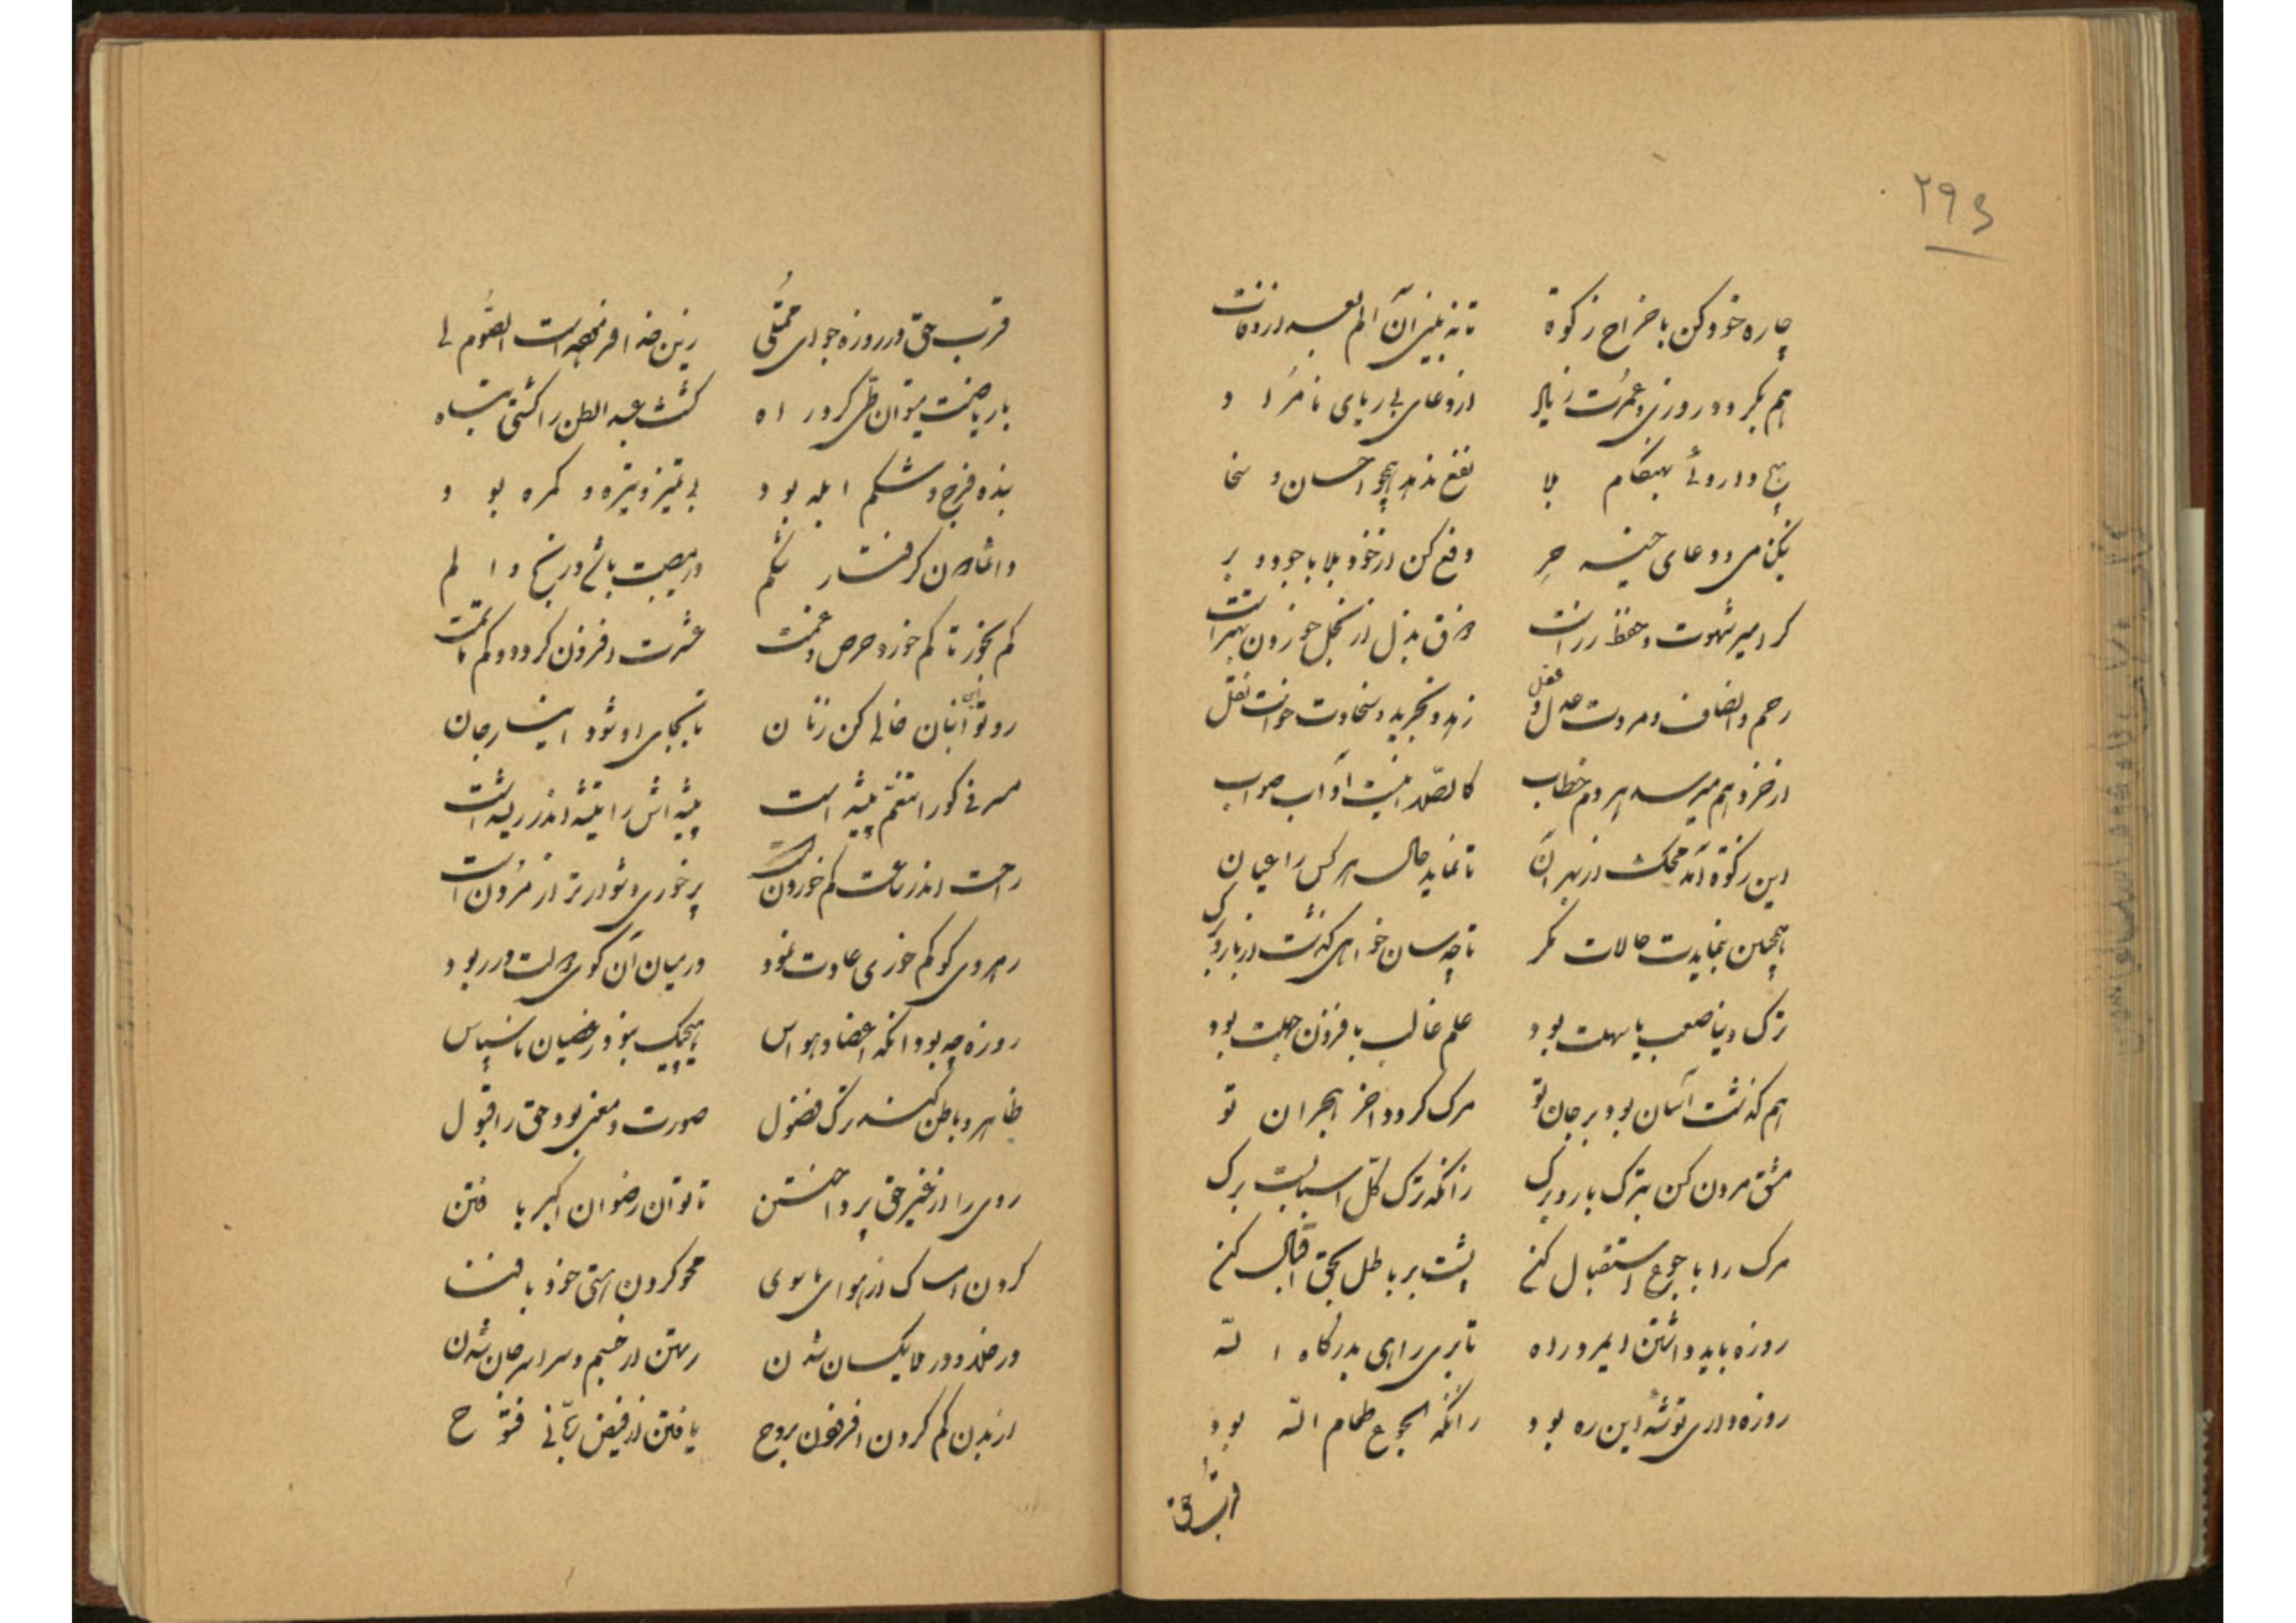 ۲۹۶
چاره خود کن باخراج زکوة تا نه بینی آن الم بعد از وفات
هم بگردد روزی و عمرت زیاد از دعای بی ریای نامراد
هیچ داروئی بهنگام بلا نفع ندهد همچو احسان و سخا
نیکنامی و دعای خیر خر دفع کن از خود بلا با جود و بر
گر امیر شهوت و حفظ زر است فرق بذل از بخل خوردن بهتر است
رحم و انصاف و مروت عدل و عقل زهد و تجرید و سخاوت خواست نقل
از خرد هم میرسد هر دم خطاب کالصلا اینست آداب صواب
این زکوة آمد محک از بهر آن تا نماید حال هر کس را عیان
همچنین بنمایدت حالات مگر تا چه سان خواهی گذشت از بار و برگ
ترک دنیا صعب یا سهلت بود علم غالب یا فزون جهلت بود
هم گذشت آسان بود بر جان تو مرگ گردد آخر هجران تو
مشق مردن کن بترک بار و برگ زانکه ترک کل اسبابست مرگ
مرگ را با جوع استقبال کن پشت بر باطل بحق اقبال کن
روزه باید داشتن ای مرد راه تا بری راهی بدرگاه اله
روزه داری توشه این ره بود زانکه الجوع طعام الله بود
قرب حق
قرب حق در روزه جو ای ممتلی زین خدا فرموده است الصوم لی
با ریاضت میتوان طی کرد راه گشت عبد البطن را کشتی تباه
بنده فرج و شکم ابله بود بی تمیز و تیره و گمره بود
دائما بودن گرفتار شکم در مصیبت باشی و رنج و الم
کم بخور تا کم خورد حرص و غمت عشرت افزون گردد و کم ماتمت
رو تو این انبان خالی کن ز نان تا بجای او شود انبار جان
معرفی کو را تنعم پیشه است پیشه اش را تیشه اندر ریشه است
راحت اندر طاعت کم خوردن است پر خوری دشوارتر از مردن است
رهروی کو کم خوری عادت نمود در میان آن گوی دولت در ربود
روزه چه بود آنکه اعضا و حواس هیچیک نبود ز عصیان ناسپاس
ظاهر و باطن کند ترک فضول صورت و معنی بود حق را قبول
روی را از غیر حق پرداختن تا توان رضوان اکبر یافتن
کردن امساک از هوای ماسوی محو کردن هستی خود با فنا
در خلا و در ملا یکسان شدن رستن از جسم و سراسر جان شدن
از بدن کم کردن افزودن بروح یافتن از فیض ربانی فتوح